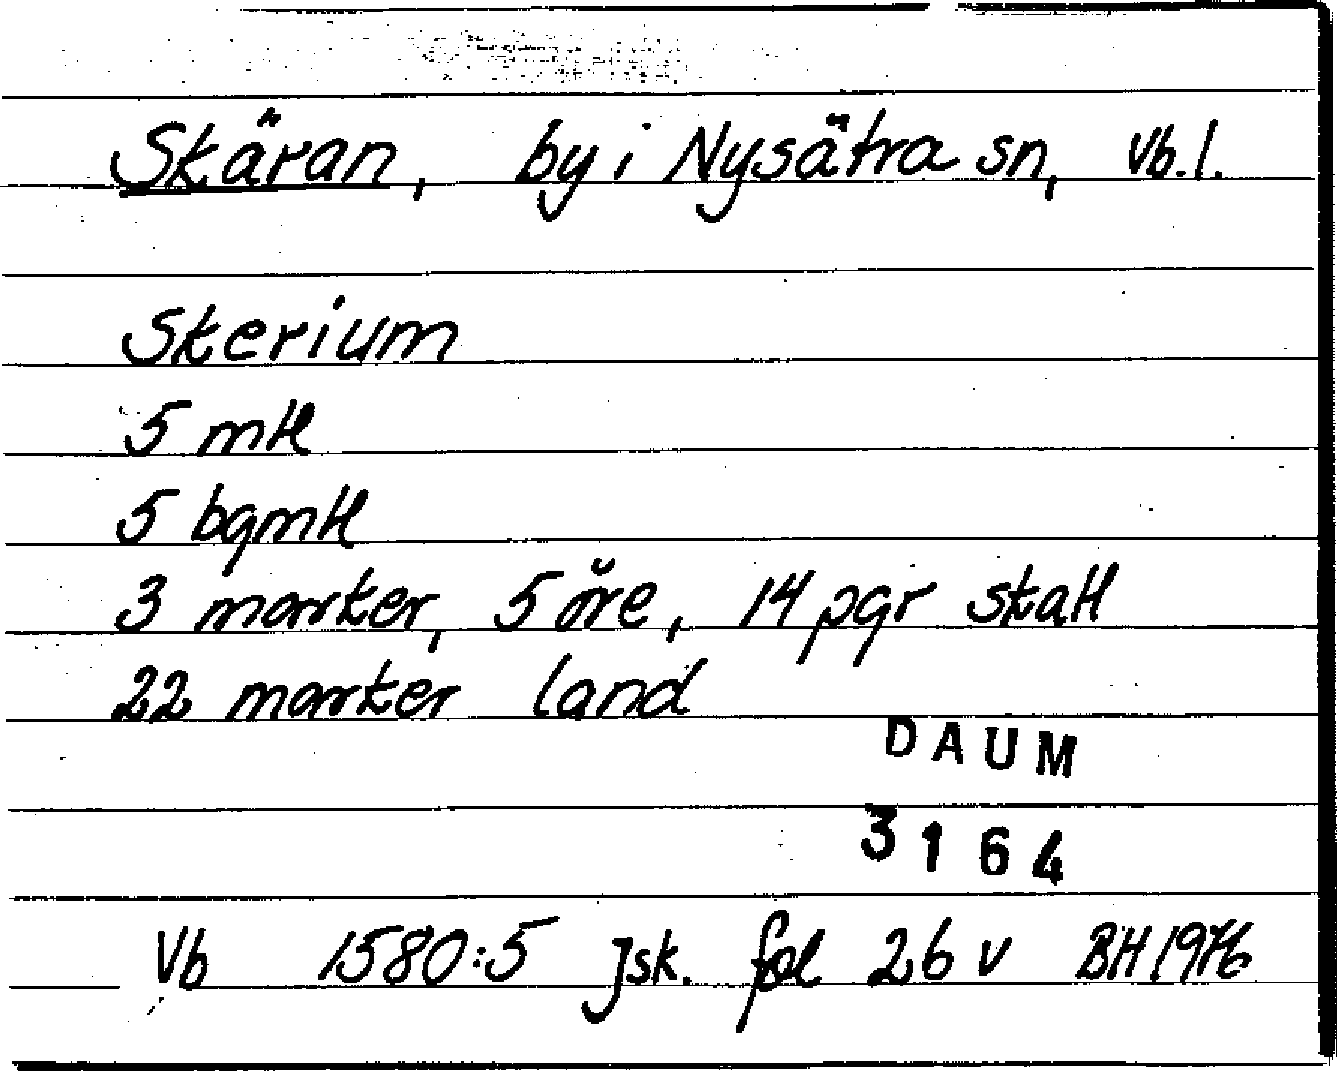 Skäran, by i Nysätra sn, Vb.l.
Skerium
5 mtl
5 bgmtl
3 marker, 5 öre, 14 pgr skatt
22 marker land
DAUM
3164
Vb 1580:5 Jsk. fol 26 v BH 1976